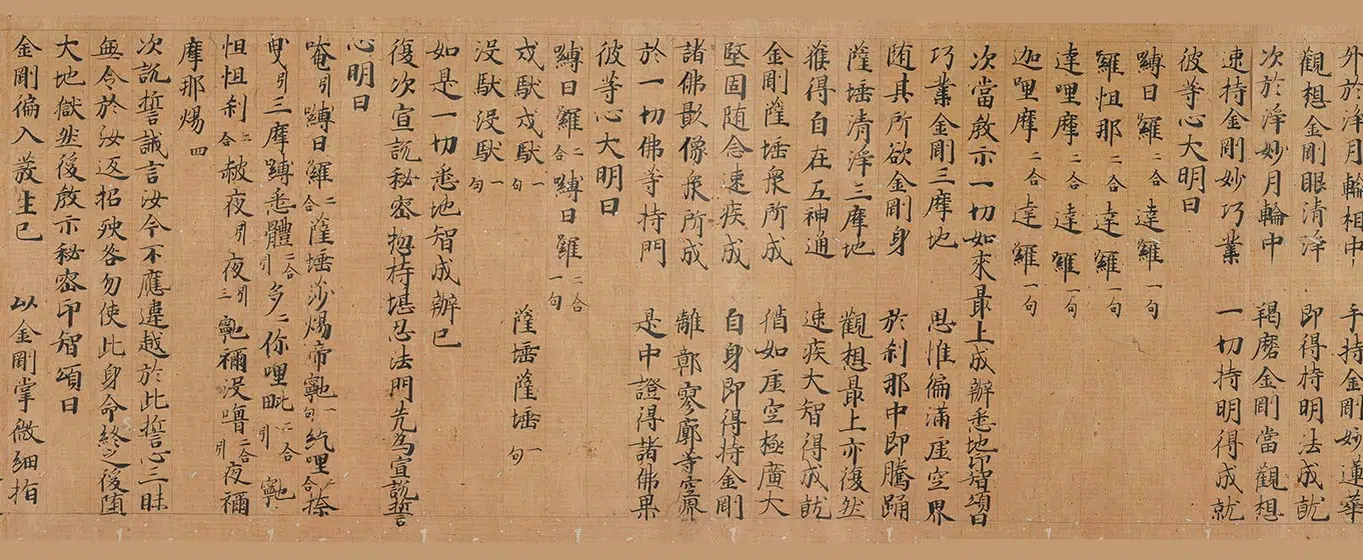 外於淨月輪相中 手持金剛妙蓮華
觀想金剛眼清淨 即得持明法成就
次於淨妙月輪中 羯磨金剛當觀想
速持金剛妙巧業 一切持明得成就
彼等心大明曰
嚩日囉二合達囉一句
囉怛那二合達囉一句
達哩摩二合達囉一句
迦哩摩二合達囉一句
次當教示一切如來最上成辦悉地印智頌曰
巧業金剛三摩地 思惟徧滿虛空界
随其所欲金剛身 於刹那中即騰踊
薩埵清淨三摩地 觀想最上亦復然
獲得自在五神通 速疾大智得成就
金剛薩埵衆所成 猶如虛空極廣大
堅固随念速疾成 自身即得持金剛
諸佛影像衆所成 離鄣寥廓等空
於一切佛等持門 是中證得諸佛果
彼等心大明曰
嚩日囉二合嚩日囉二合一句
戎馱戎馱一句 薩埵薩埵一句
没馱没馱一句
如是一切悉地智成辦已
復次宣說秘密揔持堪忍法門先為宣說誓
心明曰
唵引嚩日囉二合薩埵莎煬帝䶩一句紇哩二合捺
曳引三摩嚩悉體二合引多二你哩毗二合引䶩
怛怛刹二合赦夜引夜引三䶩禰没嚕二合引夜禰
摩那煬四
次說誓誡言汝今不應違越於此誓心三昧
無令於汝返招殃咎勿使此身命終之後堕
大地獄然後教示秘密印智頌曰
金剛徧入發生已 以金剛掌微細指